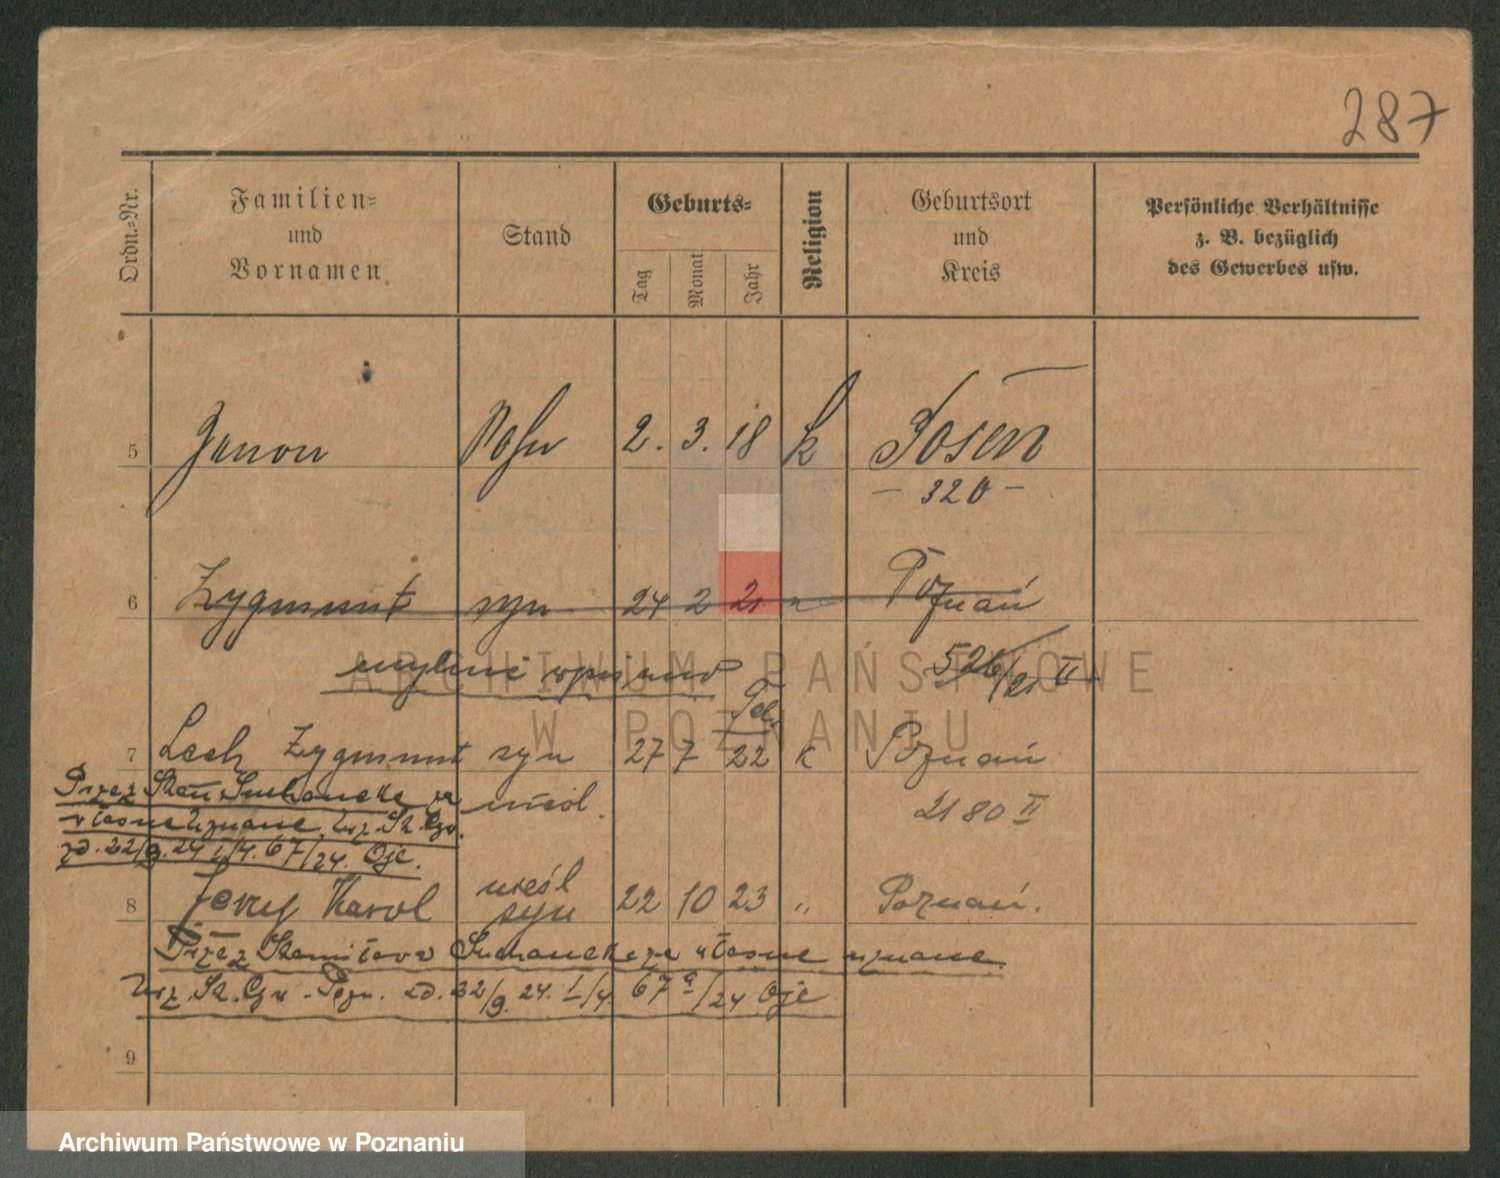 287
Ordn.-Nr.
Familien-
und
Vornamen
Stand
Geburts-
Tag
Monat
Jahr
Religion
Geburtsort
und
Kreis
Persönliche Verhältnisse
z. B. bezüglich
des Gewerbes usw.
5 Zenon Sohn 2. 3. 18 k Posen
- 320 -
6 Zygmunt syn 24 2 21 " Poznań
mylnie wpisano 526/21 II
7 Lech Zygmunt syn 27 7 22 k Poznań
Przez Stan. Suchanecke za nieśl. 2180 II
własne uznane, Urz. St. Czw.
zd. 22/9. 24 I/4. 67/24. Oje.
nieśl
8 Jerzy Karol syn 22 10 23 " Poznań.
Przez Stanisława Suchanecke za własne uznane.
Urz. St. Czw - Pozn. zd. 22/9. 24. I/4 67a/24 Oje
9
ARCHIWUM PAŃSTWOWE
W POZNANIU
Archiwum Państwowe w Poznaniu